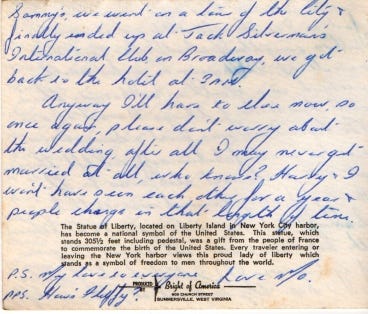 Sammy's, we went on a tour of the city &
finally ended up at Jack Silverman's
International Club, on Broadway, we got
back to the hotel at 3 am.
Anyway I'll have to close now, so
once again, please don't worry about
the wedding, after all I may never get
married at all, who knows? Harley & I
won't have seen each other for a year &
people change in that length of time.
The Statue of Liberty, located on Liberty Island in New York City harbor,
has become a national symbol of the United States. This statue, which
stands 305½ feet including pedestal, was a gift from the people of France
to commemorate the birth of the United States. Every traveler entering or
leaving the New York harbor views this proud lady of liberty which
stands as a symbol of freedom to men throughout the world.
P.S. My love to everyone Love Mo.
PPS. How's Fluffy?
PRODUCED BY Bright of America
609 CHURCH STREET
SUMMERSVILLE, WEST VIRGINIA